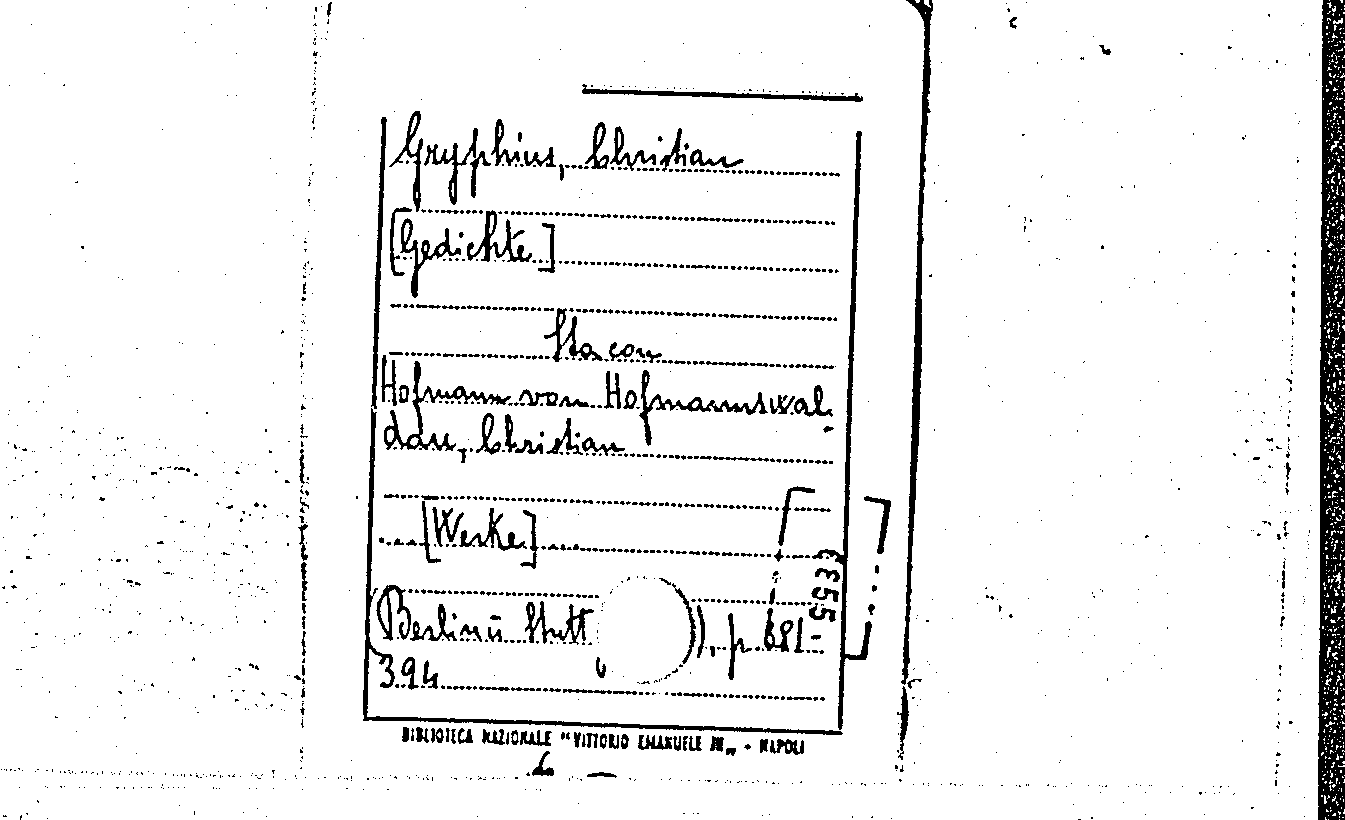 Gryphius, Christian
[Gedichte]
Sta con
Hofmann von Hofmannswal-
dau, Christian
....[Werke]....
(Berlin ü Stutt ), p. 381-
394
BIBLIOTECA NAZIONALE "VITTORIO EMANUELE III„ - NAPOLI